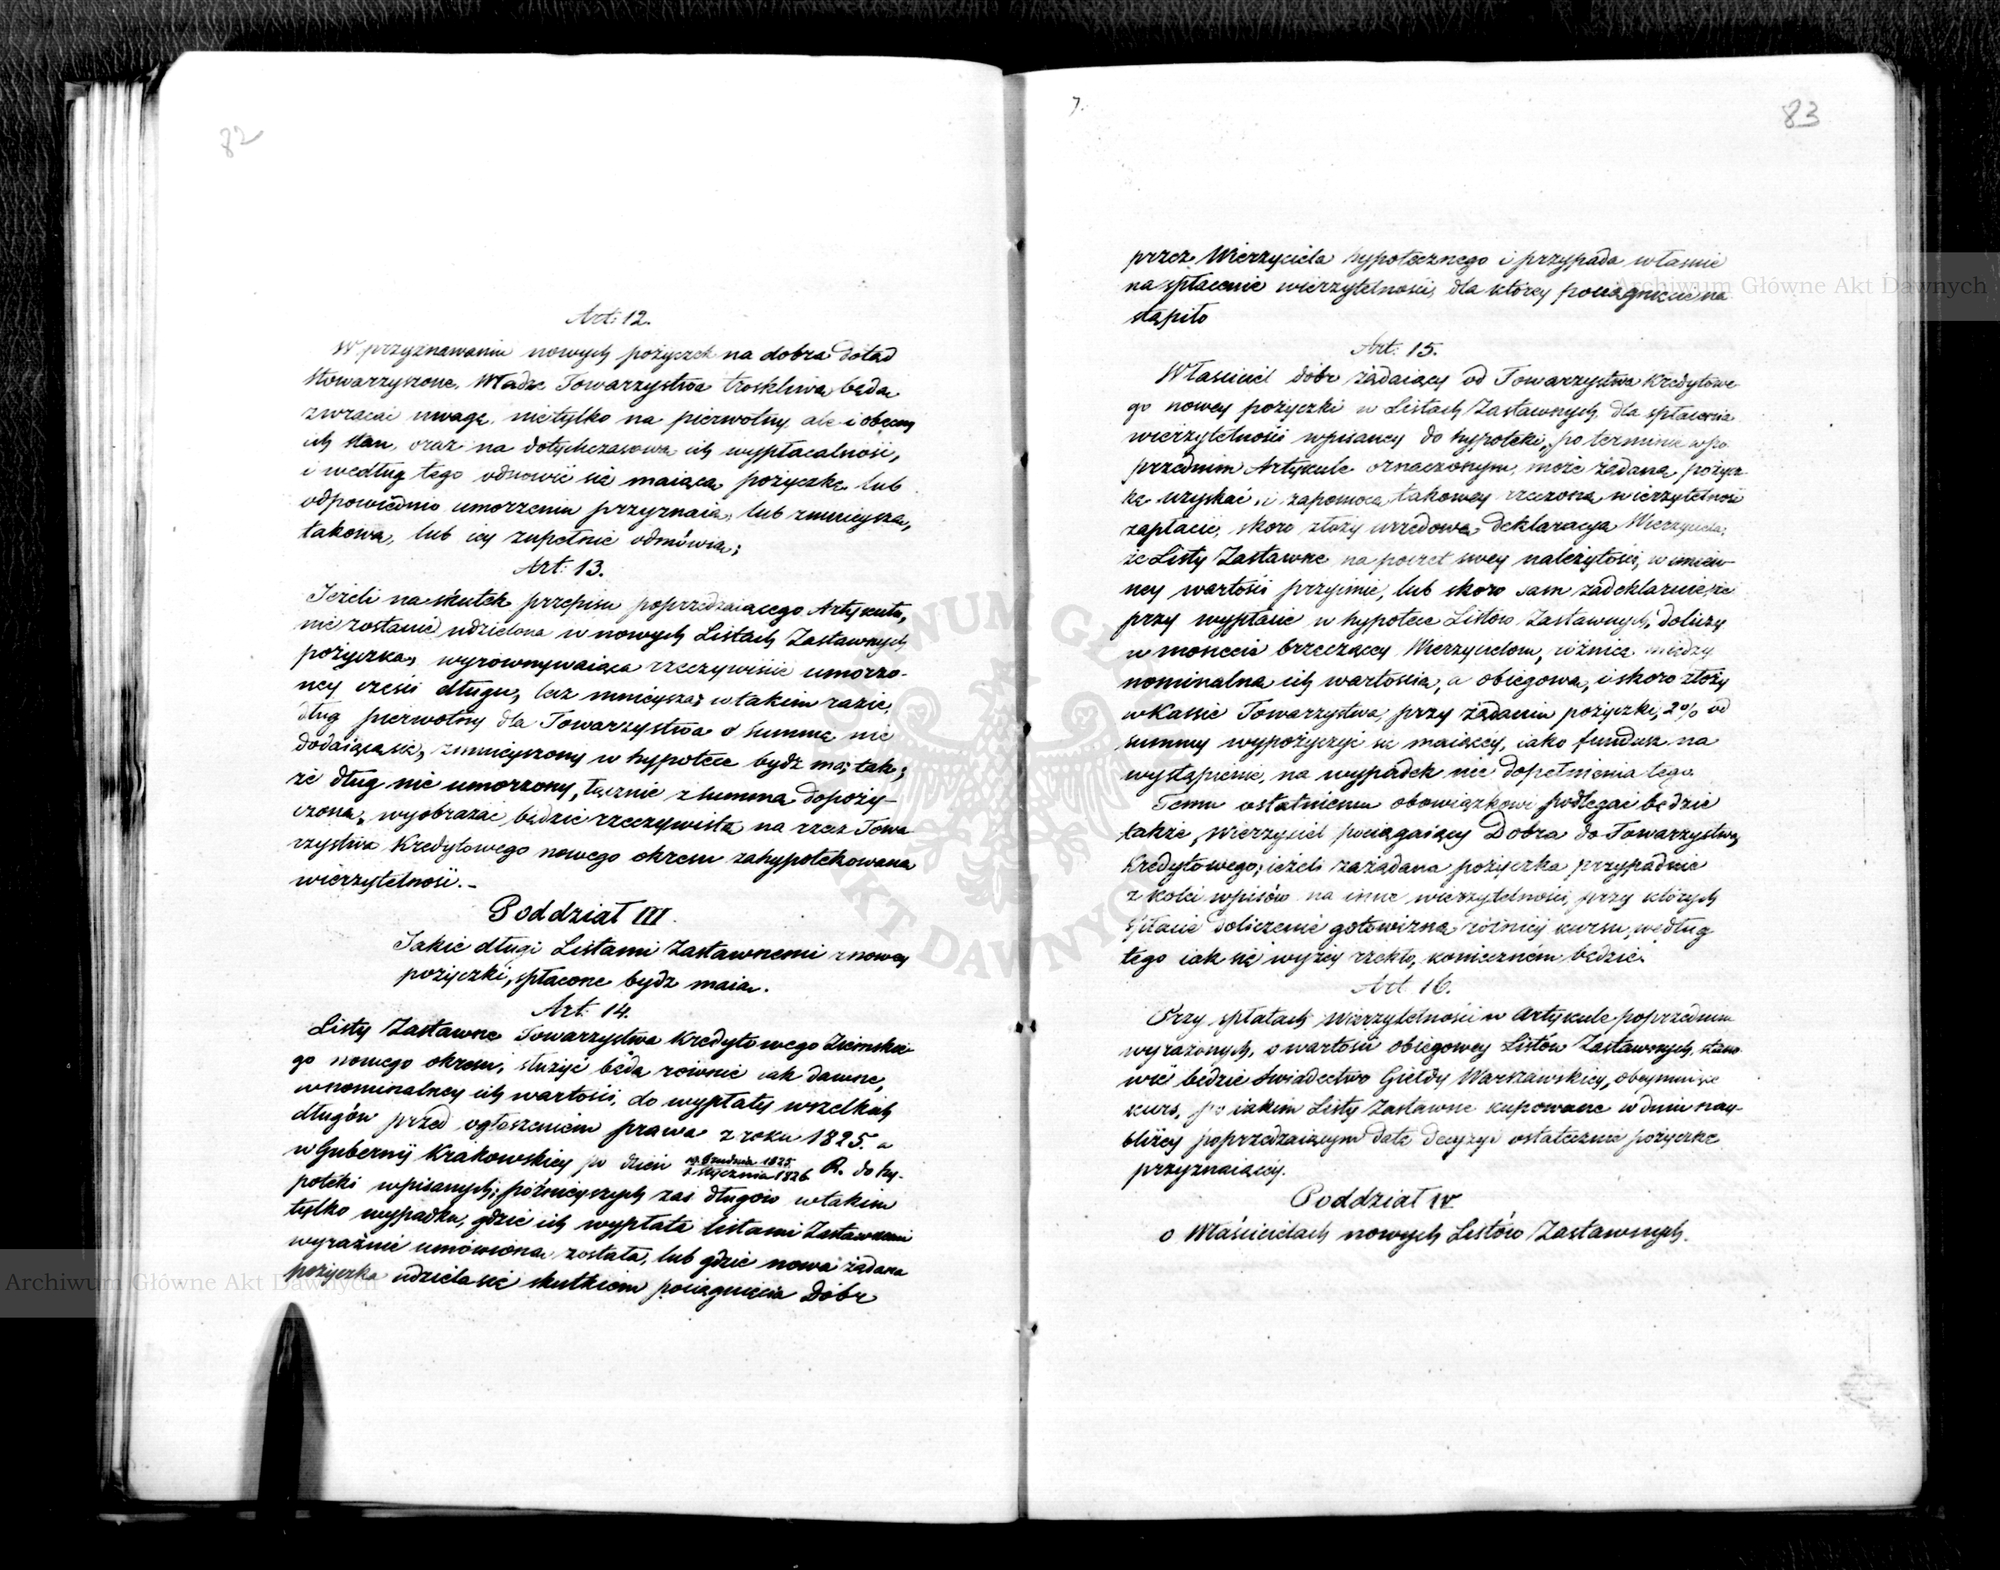 82
Art: 12.
W przyznawaniu nowych pożyczek na dobra dotąd
stowarzyszone, Władze Towarzystwa troskliwą będą
zwracać uwagę, nietylko na pierwotny ale i obecny
ich stan, oraz na dotychczasową ich wypłacalność,
i według tego odnowić się maiącą pożyczkę lub
odpowiednio umorzeniu przyznaią, lub zmnieyszą,
takową, lub iey zupełnie odmówią;
Art: 13.
Jeżeli na skutek przepisu poprzedzaiącego Artykułu,
nie zostanie udzielona w nowych Listach Zastawnych
pożyczka, wyrównywaiąca rzeczywiście umorzo-
ney części długu, lecz mnieysza; w takim razie,
dług pierwotny dla Towarzystwa o summę nie
dodaiącą się, zmnieyszony w hypotece bydź ma; tak;
że dług nie umorzony, łącznie z summą dopoży-
czoną, wyobrażać będzie rzeczywistą na rzecz Towa
rzystwa Kredytowego nowego okresu zahypotekowaną
wierzytelność. -
Poddział III.
Jakie długi Listami Zastawnemi z nowey
pożyczki, spłacone bydź maią.
Art: 14.
Listy Zastawne Towarzystwa Kredytowego Ziemskie
go nowego okresu, służyć będą równie iak dawne,
w nominalney ich wartości, do wypłaty wszelkich
długów przed ogłoszeniem prawa z roku 1825. a
w Gubernij Krakowskiey po dzień 20 Grudnia 1825 / 1 Stycznia 1826 R. do hy-
poteki wpisanych; późnieyszych zaś długów w takim
tylko wypadku, gdzie ich wypłata listami Zastawnemi
wyraźnie umówioną została, lub gdzie nowa żądana
pożyczka udziela się skutkiem pociągnięcia Dóbr
7.
83
przez Wierzyciela hypotecznego i przypada właśnie
na spłacenie wierzytelności, dla którey pociągnięcie na
stąpiło
Art: 15.
Właściciel dóbr żądaiący od Towarzystwa Kredytowe
go nowey pożyczki w Listach Zastawnych dla spłacenia
wierzytelności wpisaney do hypoteki, po terminie w po
przednim Artykule oznaczonym, może żądaną pożycz
kę uzyskać, i za pomocą takowey rzeczoną wierzytelność
zapłacić, skoro złoży urzędową deklaracyą Wierzyciela,
że Listy Zastawne na poczet swey należytości, w imien-
ney wartości przyimie, lub skoro sam zadeklaruie, że
przy wypłacie w hypotece Listów Zastawnych, doliczy
w monecie brzęczącey Wierzycielom, różnicę między
nominalną ich wartością, a obiegową, i skoro złoży
w Kassie Towarzystwa, przy żądaniu pożyczki, 2% od
summy wypożyczyć się maiącey, iako fundusz na
wystąpienie, na wypadek nie dopełnienia tego.
Temu ostatniemu obowiązkowi podlegać będzie
także, wierzyciel pociągaiący Dobra do Towarzystwa
Kredytowego; ieżeli zażądana pożyczka przypadnie
z kolei wpisów na inne wierzytelności, przy których
spłacie doliczenie gotowizną różnicy kursu, według
tego iak się wyżey rzekło, koniecznem będzie.
Art 16.
Przy spłatach wierzytelności w Artykule poprzednim
wyrażonych, o wartości obiegowey Listów Zastawnych, stano
wić będzie świadectwo Giełdy Warszawskiey, obeymuiące
kurs, po iakim Listy Zastawne kupowane w dniu nay-
bliżey poprzedzaiącym datę decyzyi ostatecznie pożyczkę
przyznaiącey.
Poddział IV
o Właścicielach nowych Listów Zastawnych.
Archiwum Główne Akt Dawnych
Archiwum Główne Akt Dawnych
ARCHIWUM GŁÓWNE AKT DAWNYCH